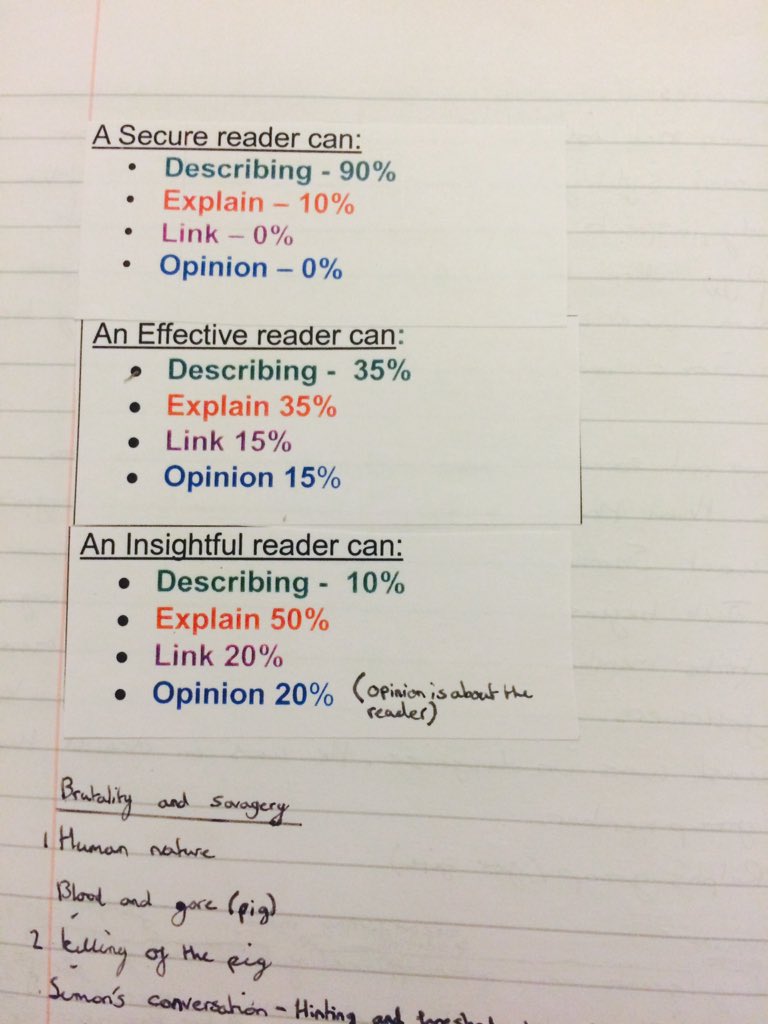 A Secure reader can:
• Describing - 90%
• Explain – 10%
• Link – 0%
• Opinion – 0%
An Effective reader can:
• Describing - 35%
• Explain 35%
• Link 15%
• Opinion 15%
An Insightful reader can:
• Describing - 10%
• Explain 50%
• Link 20%
• Opinion 20% (opinion is about the
reader)
Brutality and savagery
1 Human nature
Blood and gore (pig)
2 killing of the pig
Simon's conversation - Hinting and